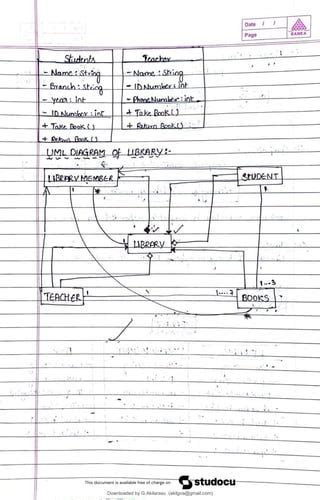 Date / /
Page
RANKA
Students
- Name : String
- Branch : String
- year : int
- ID Number : int
+ Take Book ( )
+ Return Book ( )
Teacher
- Name : String
- ID Number : int
- Phone Number : int
+ Take Book ( )
+ Return Book ( )
UML DIAGRAM OF LIBRARY :-
LIBRARY MEMBER
STUDENT
LIBRARY
TEACHER
BOOKS
1
1....7
1...3
This document is available free of charge on
studocu
Downloaded by G.Akilarasu. (akilgns@gmail.com)